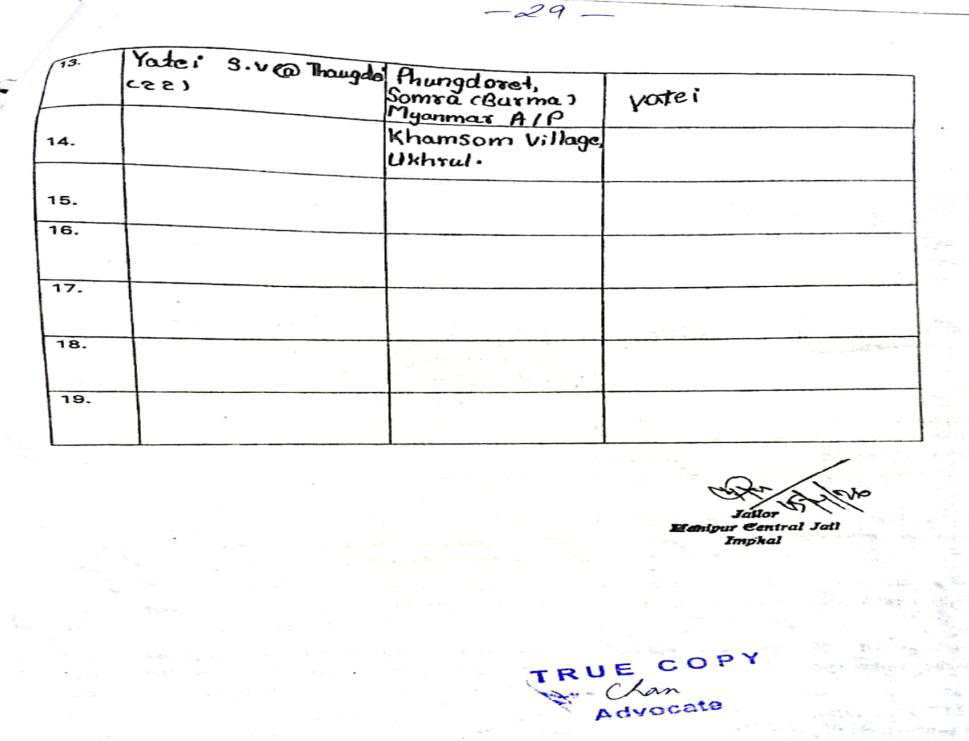 -29-
13. Yatei S.V @ Thaugdei Phungdoret, yatei
(22) Somra (Burma)
Myanmar A/P
14. Khamsom Village,
Ukhrul.
15.
16.
17.
18.
19.
Jailor
Manipur Central Jail
Imphal
TRUE COPY
Chan
Advocate